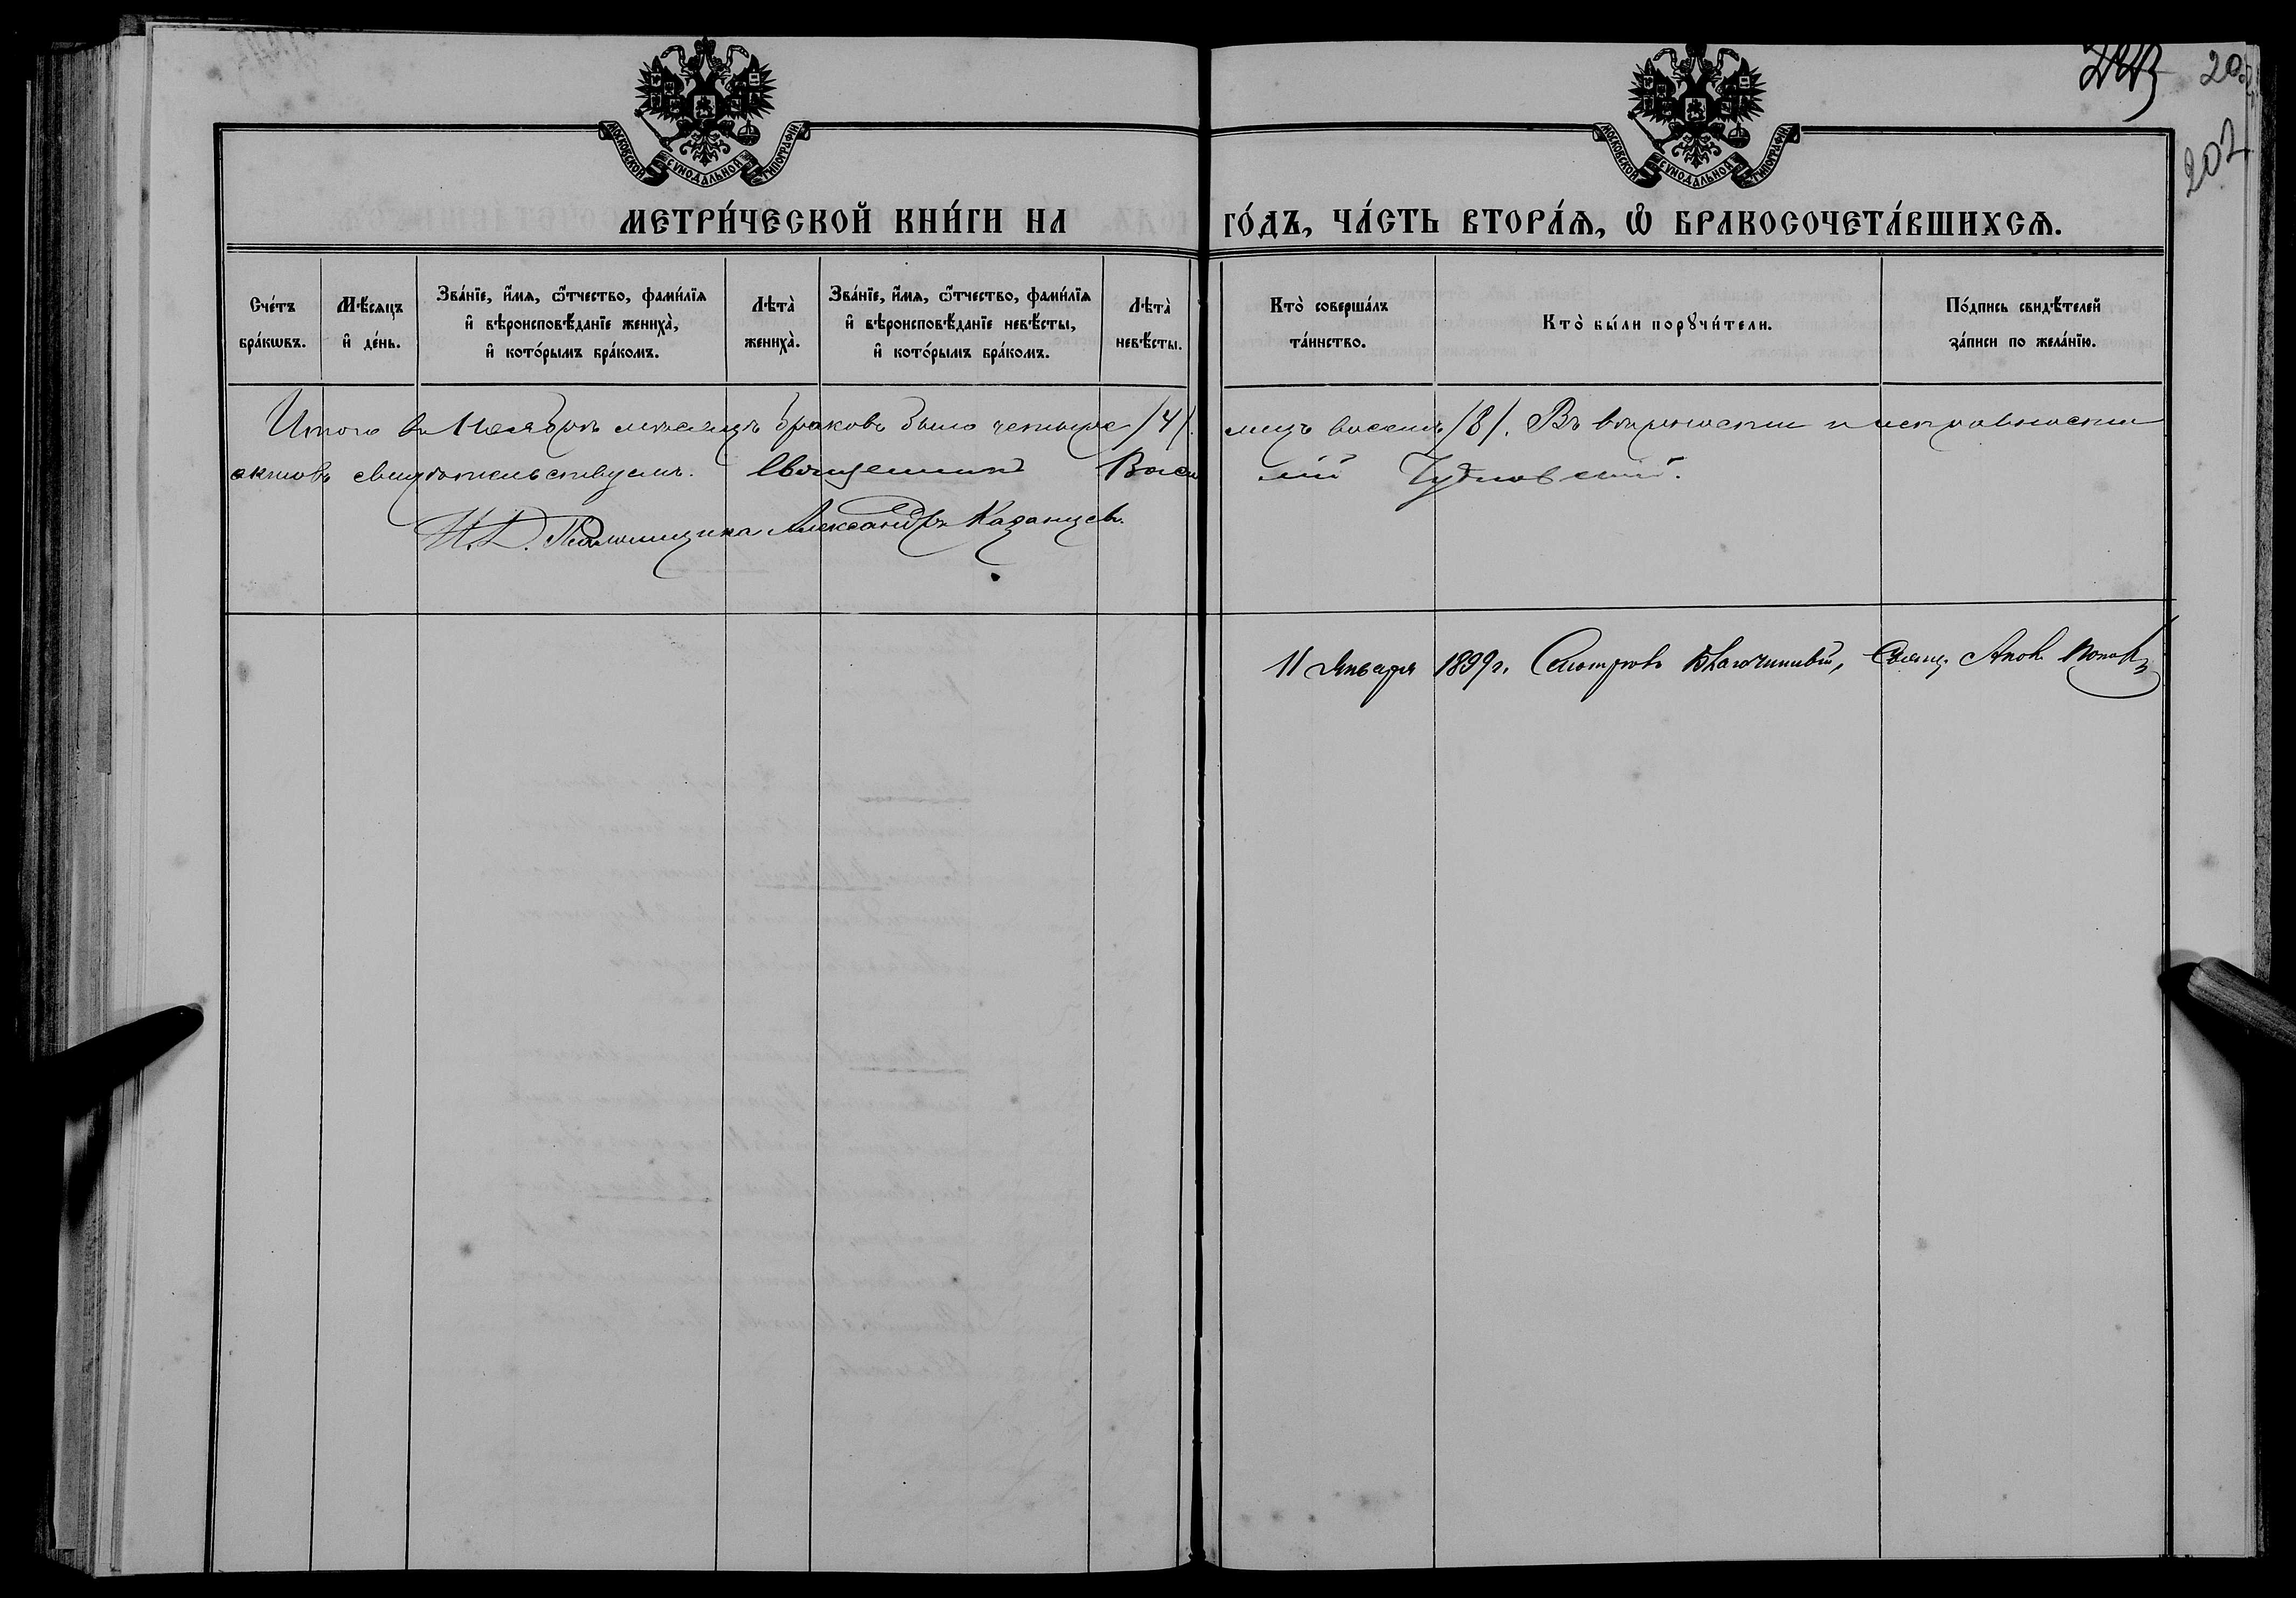 20
202
МОСКОВСКОЙ СѴНОДАЛЬНОЙ ТИПОГРАФІИ.
МОСКОВСКОЙ СѴНОДАЛЬНОЙ ТИПОГРАФІИ.
МЕТРИ́ЧЕСКОЙ КНИ́ГИ НА ГО́ДЪ, ЧА́СТЬ ВТОРА́Ѧ, Ѡ҆ БРАКОСОЧЕТА́ВШИХСѦ.
Сче́тъ бра́кѡвъ.
Мѣ́сѧцъ и҆ де́нь.
Зва́нїе, и҆́мѧ, ѻ҆́тчество, фами́лїѧ и҆ вѣроисповѣ́данїе жениха̀, и҆ кото́рымъ бра́комъ.
Лѣта̀ жениха̀.
Зва́нїе, и҆́мѧ, ѻ҆́тчество, фами́лїѧ и҆ вѣроисповѣ́данїе невѣ́сты, и҆ кото́рымъ бра́комъ.
Лѣта̀ невѣ́сты.
Кто̀ соверша́лъ та́инство.
Кто̀ бы́ли порꙋчи́тели.
По́дпись свидѣ́телей за́писи по жела́нїю.
Итого въ Ноябрѣ мѣсяцѣ браковъ было четыре /4/. лицъ восемь /8/. Въ вѣрности и исправности
актовъ свидѣтельствуемъ. Священникъ Василій Чудновскій.
И. Д. Псаломщика Александръ Казанцевъ.
11 Января 1899 г. Смотрѣлъ Благочинный, Свящ. Попов